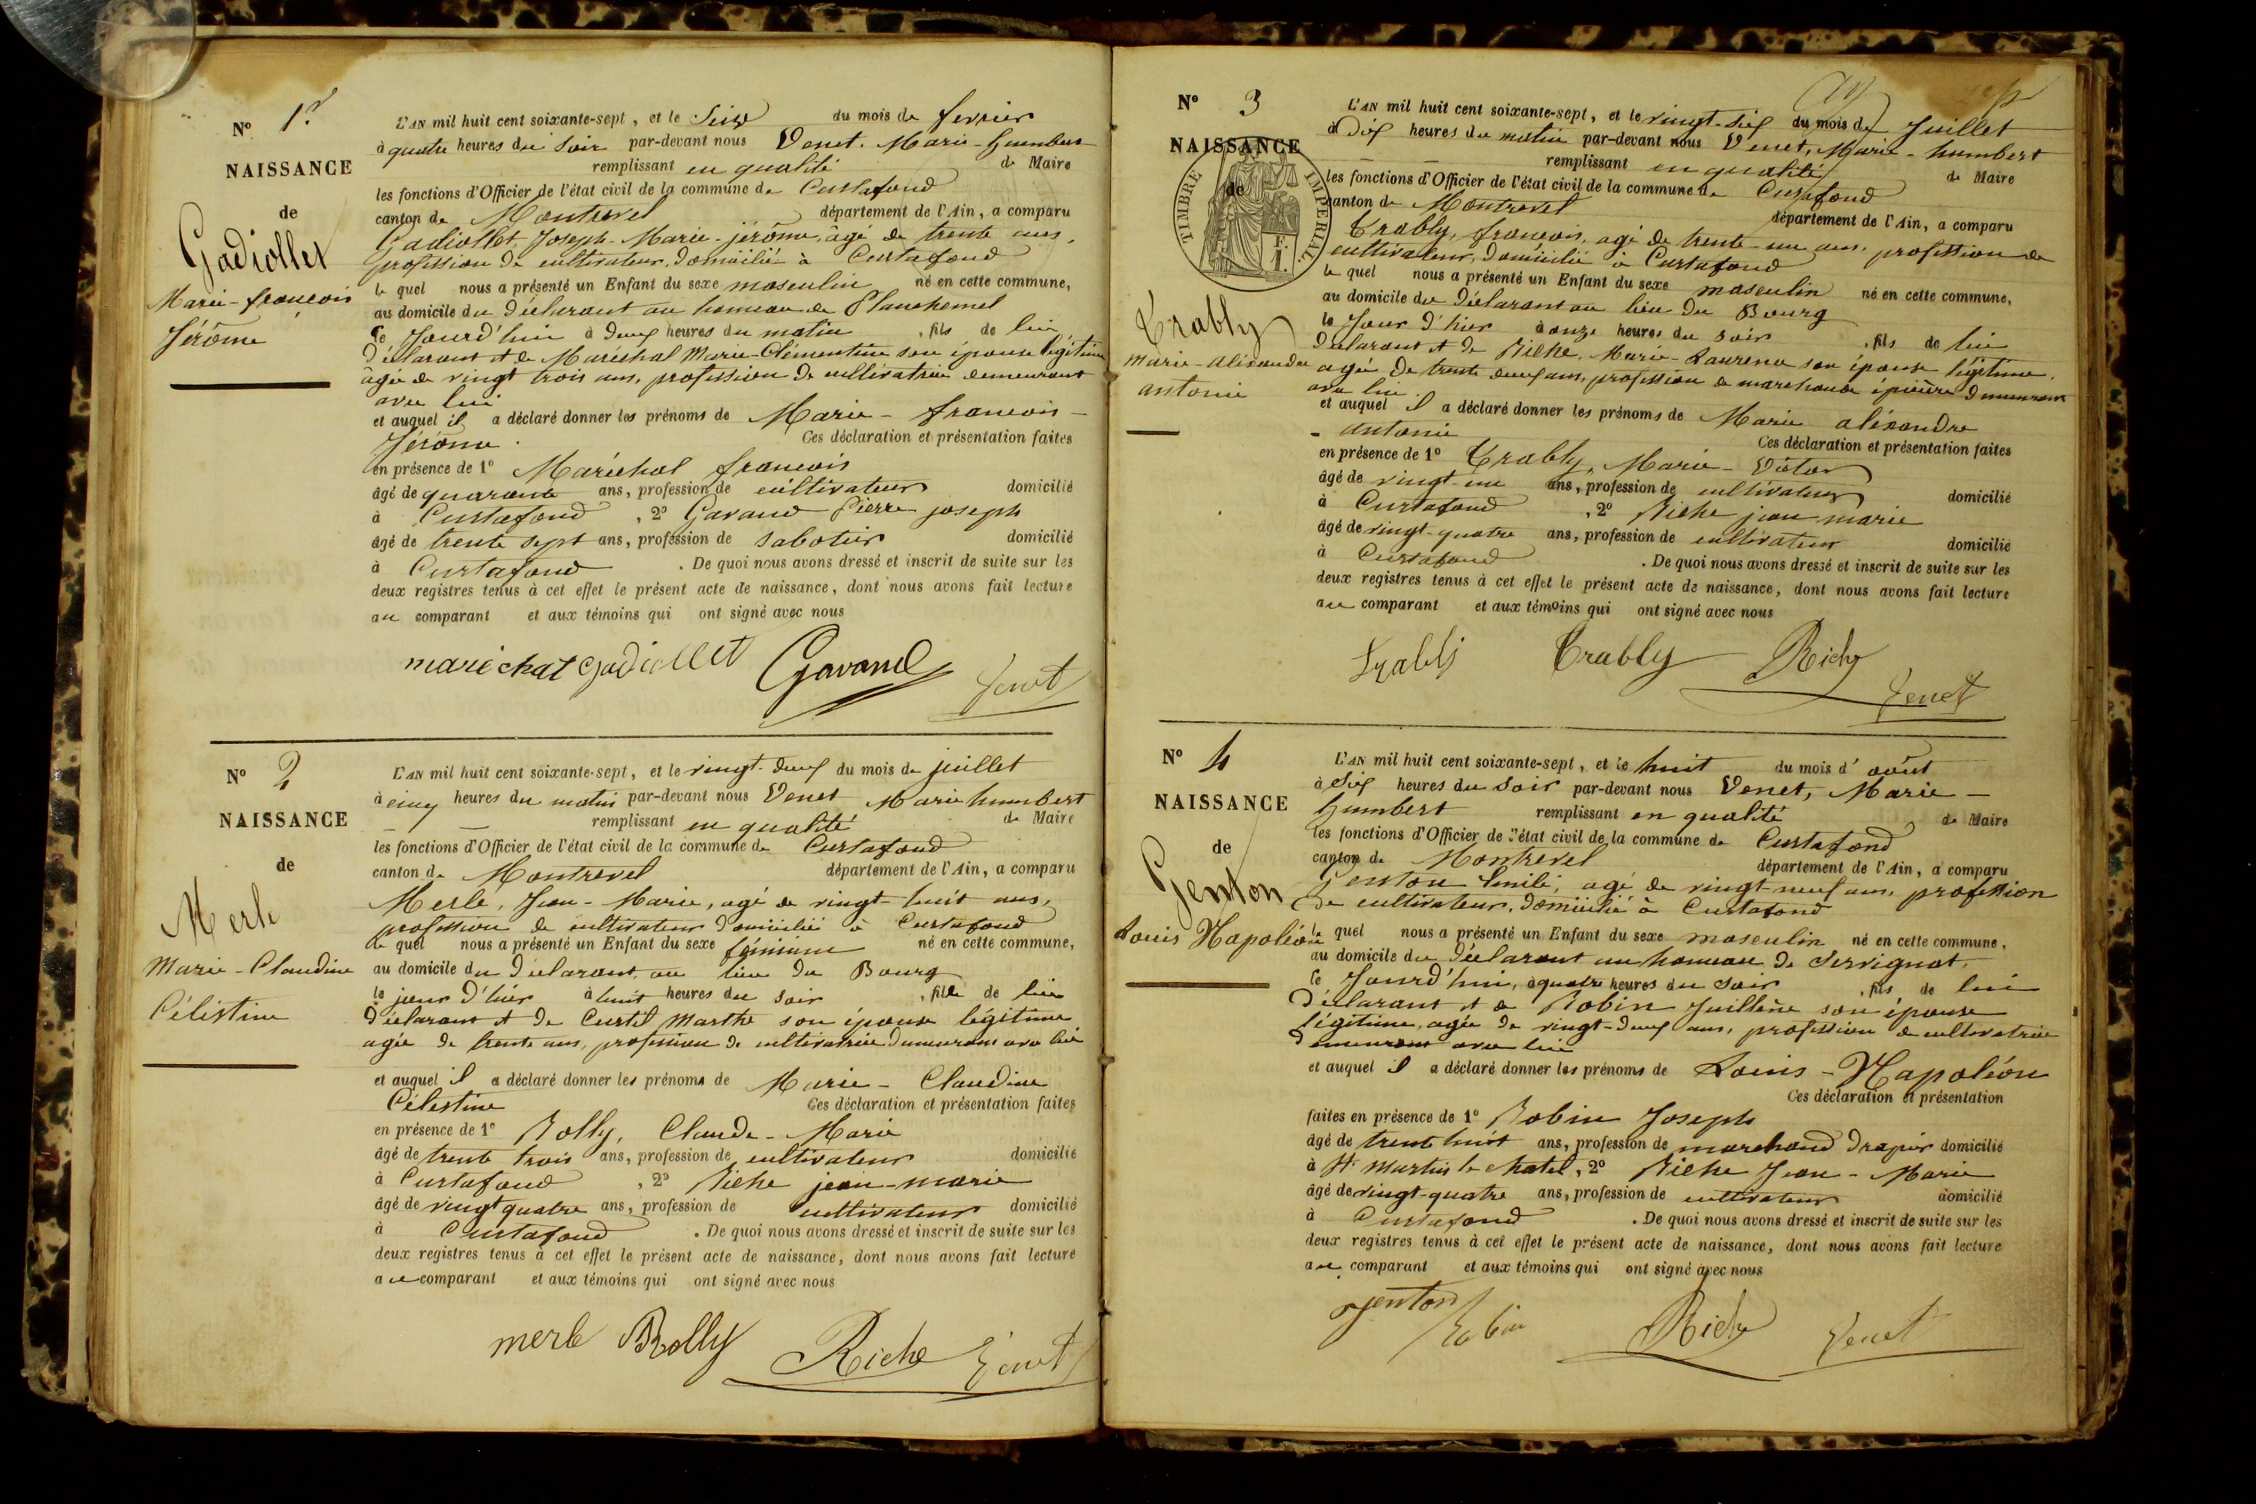 N° 1er
NAISSANCE
de
Gadiollet
Marie-françois
Jérôme
L'AN mil huit cent soixante-sept, et le Seize du mois de fevrier
à quatre heures du soir par-devant nous Venet. Marie-humbert
remplissant en qualité de Maire
les fonctions d'Officier de l'état civil de la commune de Curtafond
canton de Montrevel département de l'Ain, a comparu
Gadiollet Joseph-Marie-jérôme, âgé de trente ans,
profession de cultivateur, domicilié à Curtafond
le quel nous a présenté un Enfant du sexe masculin né en cette commune,
au domicile du déclarant au hameau de Planchemel
le Jourd'hui à deux heures du matin, fils de lui
déclarant et de Maréchal Marie-Clémentine son épouse légitime
âgée de vingt trois ans, profession de cultivatrice demeurant
avec lui
et auquel il a déclaré donner les prénoms de Marie-françois-
Jérôme. Ces déclaration et présentation faites
en présence de 1° Maréchal françois
âgé de quarante ans, profession de cultivateur domicilié
à Curtafond, 2° Gavand Pierre joseph
âgé de trente sept ans, profession de sabotier domicilié
à Curtafond. De quoi nous avons dressé et inscrit de suite sur les
deux registres tenus à cet effet le présent acte de naissance, dont nous avons fait lecture
au comparant et aux témoins qui ont signé avec nous
maréchal gadiollet Gavand Venet
N° 2
NAISSANCE
de
Merle
Marie-Claudine
Célestine
L'AN mil huit cent soixante-sept, et le vingt-deux du mois de juillet
à cinq heures du matin par-devant nous Venet Marie humbert
remplissant en qualité de Maire
les fonctions d'Officier de l'état civil de la commune de Curtafond
canton de Montrevel département de l'Ain, a comparu
Merle, Jean-Marie, agé de vingt-huit ans,
profession de cultivateur domicilié à Curtafond
le quel nous a présenté un Enfant du sexe féminin né en cette commune,
au domicile du déclarant au lieu du Bourg
le jour d'hier à huit heures du soir, fille de lui
déclarant et de Curtil Marthe son épouse légitime
agée de trente ans, profession de cultivatrice demeurant avec lui
et auquel il a déclaré donner les prénoms de Marie-Claudine
Célestine Ces déclaration et présentation faites
en présence de 1° Rolly, Claude-Marie
âgé de trente trois ans, profession de cultivateur domicilié
à Curtafond, 2° Riche jean-marie
âgé de vingt quatre ans, profession de cultivateur domicilié
à Curtafond. De quoi nous avons dressé et inscrit de suite sur les
deux registres tenus à cet effet le présent acte de naissance, dont nous avons fait lecture
au comparant et aux témoins qui ont signé avec nous
merle Rolly Riche Venet
N° 3
NAISSANCE
de
TIMBRE IMPERIAL.
Trably
Marie-alexandre
antonin
L'AN mil huit cent soixante-sept, et le vingt-six du mois de Juillet
à dix heures du matin par-devant nous Venet, Marie-humbert
remplissant en qualité de Maire
les fonctions d'Officier de l'état civil de la commune de Curtafond
canton de Montrevel département de l'Ain, a comparu
Trably, françois, agé de trente-un ans, profession de
cultivateur, domicilié à Curtafond
le quel nous a présenté un Enfant du sexe masculin né en cette commune,
au domicile du déclarant au lieu du Bourg
le Jour d'hier à onze heures du soir, fils de lui
déclarant et de Riche, Marie-Laurence son épouse légitime,
agée de trente deux ans, profession de marchande épicière demeurant
avec lui.
et auquel il a déclaré donner les prénoms de Marie alexandre
- antonin Ces déclaration et présentation faites
en présence de 1° Trably, Marie-Victor
âgé de vingt-un ans, profession de cultivateur domicilié
à Curtafond, 2° Riche jean marie
âgé de vingt-quatre ans, profession de cultivateur domicilié
à Curtafond. De quoi nous avons dressé et inscrit de suite sur les
deux registres tenus à cet effet le présent acte de naissance, dont nous avons fait lecture
au comparant et aux témoins qui ont signé avec nous
Trably Trably Riche Venet
N° 4
NAISSANCE
de
Genton
Louis Napoléon
L'AN mil huit cent soixante-sept, et le huit du mois d'août
à dix heures du soir par-devant nous Venet, Marie-
humbert remplissant en qualité de Maire
les fonctions d'Officier de l'état civil de la commune de Curtafond
canton de Montrevel département de l'Ain, a comparu
Genton Emile, agé de vingt-neuf ans, profession
de cultivateur, domicilié à Curtafond
le quel nous a présenté un Enfant du sexe masculin né en cette commune,
au domicile du déclarant au hameau de Servignat,
le Jourd'hui, à quatre heures du soir, fils de lui
déclarant et de Robin Juillène son épouse
légitime, agée de vingt-deux ans, profession de cultivatrice
demeurant avec lui
et auquel il a déclaré donner les prénoms de Louis-Napoléon
Ces déclaration et présentation
faites en présence de 1° Robin Joseph
âgé de trente huit ans, profession de marchand drapier domicilié
à St Martin le chatel, 2° Riche Jean-Marie
âgé de vingt-quatre ans, profession de cultivateur domicilié
à Curtafond. De quoi nous avons dressé et inscrit de suite sur les
deux registres tenus à cet effet le présent acte de naissance, dont nous avons fait lecture
au comparant et aux témoins qui ont signé avec nous
genton Robin Riche Venet